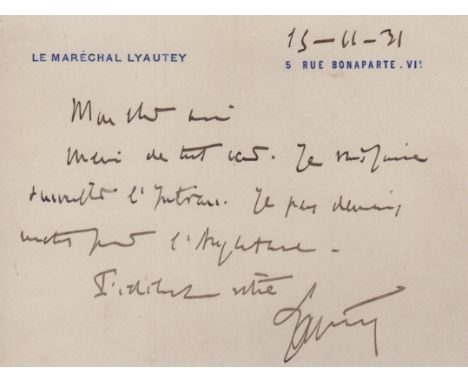 15-11-31
LE MARÉCHAL LYAUTEY
5 RUE BONAPARTE. VIᵉ
Mon cher ami
Merci de tout cœur. Je
l'Intran. Je pars demain
matin pour l'Angleterre -
Fidèlement votre
Lyautey